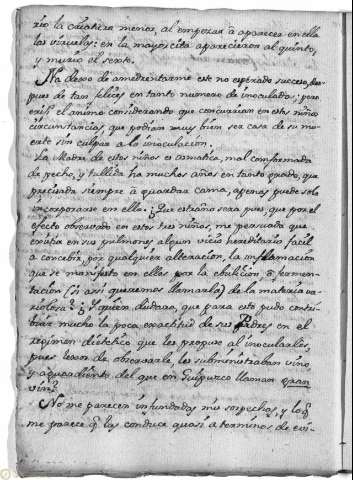 rio la criatura menor, al empezar à aparecer en ella
las viruelas: en la mayorcita aparecieron al quinto,
y murió el sexto.
No dexó de amedrentarme este no esperado suceso, des-
pues de tan felices en tanto numero de inoculados; pero
el animo considerando que concurrian en estos niños
circunstancias, que podrian muy bien ser causa de su mu-
erte sin culpar a la inoculacion.
La Madre de estos niños es asmatica, mal conformada
de pecho, y tullida ha muchos años en tanto grado, que
precisada siempre à guardar cama, apenas puede solo
incorporarse en ella: ¿Que estraño será pues, que por el
efecto observado en estos tres niños, me persuada que
exista en sus pulmones algun vicio hereditario facil
a concebir, por qualquier alteracion, la inflamacion
que se manifestó en ellos por la ebulicion ò fermen-
tacion (si assi queremos llamarla) de la materia va-
riolosa? ¿Y quien dudará, que para esto pudo contri-
buir mucho la poca exactitud de sus Padres en el
regimen dietetico que les propuse al inocularles,
pues lexos de observarle, les subministraban vino
y aguardiente del que en Guipuzcoa llaman gran
vino?
No me parecen infundadas mis sospechas, y lo q.
me parece q. las conduce quasi a terminos de evi-